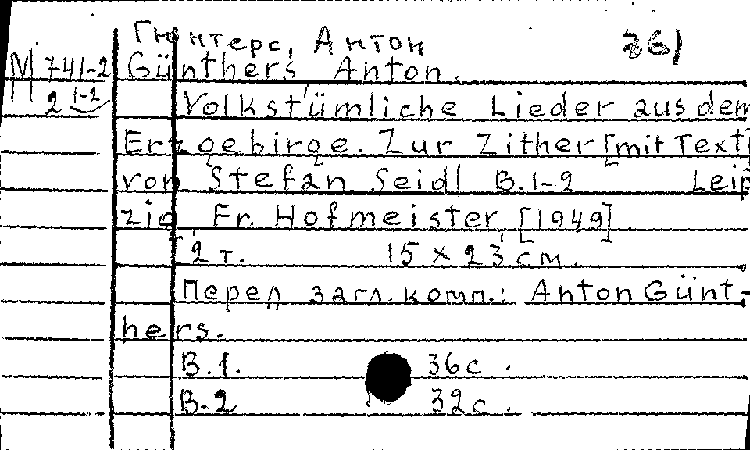 Гюнтерс, Антон
M 741-2
2 1-2
Günthers Anton.
Volkstümliche Lieder aus dem
Erzgebirge. Zur Zither [mit Text]
von Stefan Seidl B.1-2 Leip
zig Fr. Hofmeister, [1949]
2 т. 15 x 23 см.
Перед загл. комп.: Anton Günt-
hers.
B.1. 36 с.
B.2 32 с.